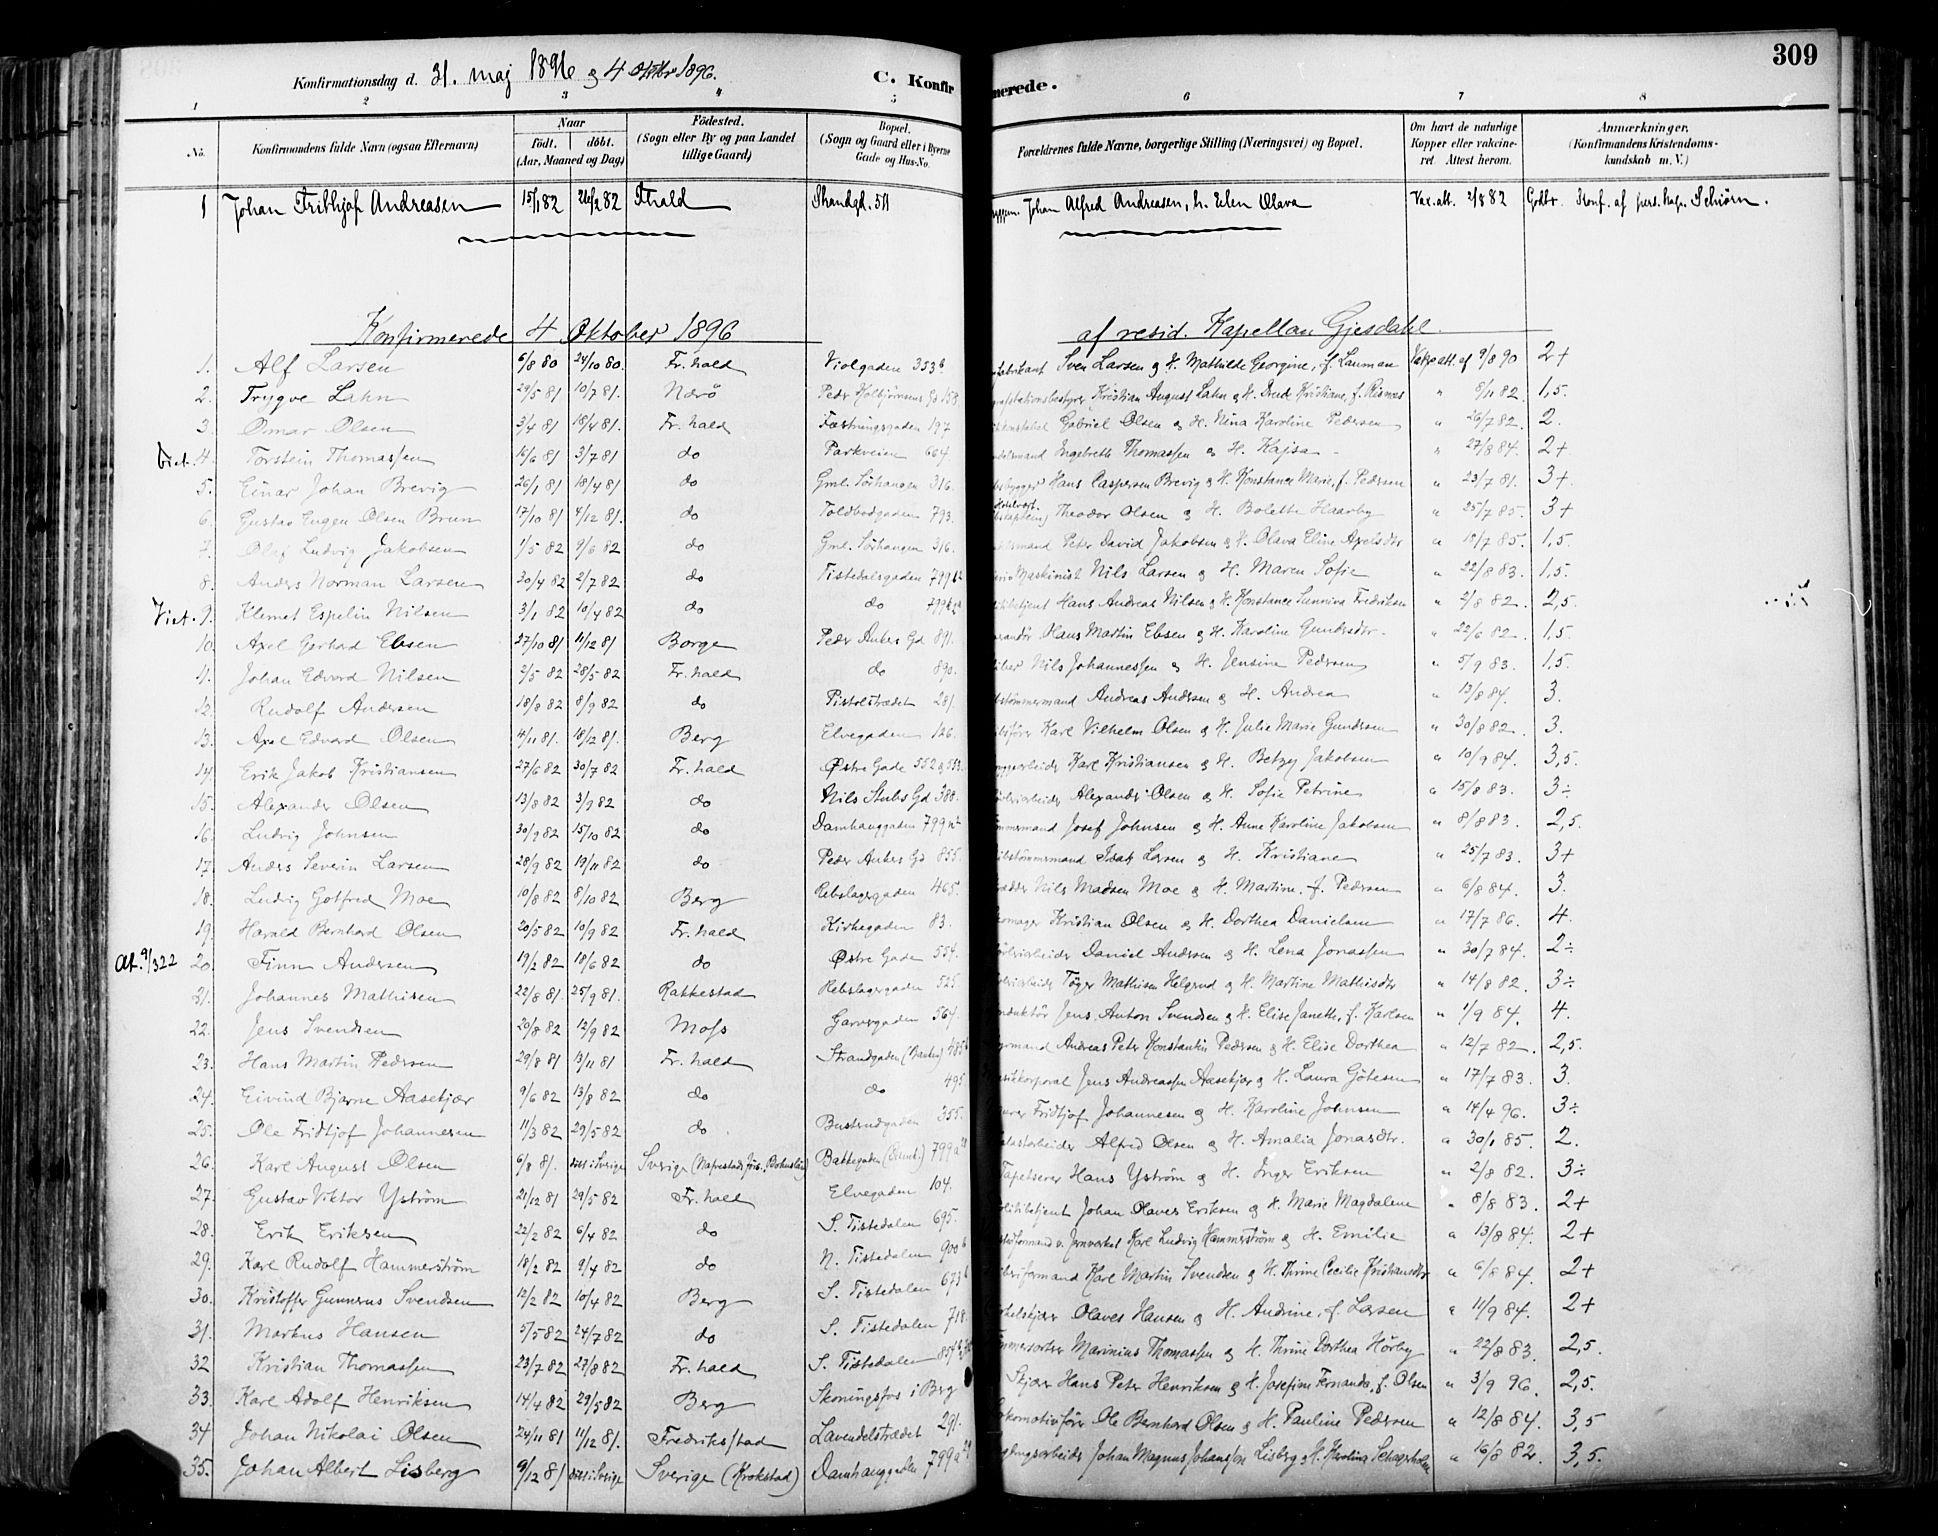 309
Konfirmationsdag d. 31. maj 1896 og 4 Oktbr 1896. C. Konfirmerede.
1 2 3 4 5 6 7 8
No. Konfirmandens fulde Navn (ogsaa Efternavn) Naar født. døbt. (Aar, Maaned og Dag) Fødested. (Sogn eller By og paa Landet tillige Gaard) Bopæl. (Sogn og Gaard eller i Byerne Gade og Hus-No. Forældrenes fulde Navne, borgerlige Stilling (Næringsvei) og Bopæl. Om havt de naturlige Kopper eller vakcineret. Attest herom. Anmærkninger. (Konfirmandens Kristendomskundskab m. V.)
1 Johan Frithjof Andreasen 15/1 82 26/2 82 Fhald Strandgd. 511 Johan Alfred Andreasen, h. Elen Olava Vax. att. 2/8 82 Godtr. Konf. af pers. kap. Schiørn.
Konfirmerede 4 Oktober 1896 af resid. Kapellan Gjesdahl.
1. Alf Larsen 6/8 80 24/10 80. Fr.hald Violgaden 353b Sven Larsen og H. Mathilde Georgine, f. Lauman Vakc. att. af 9/8 90 2+
2. Trygve Lahn 29/5 81 10/7 81. Nærø Peder Kolbjørnsens Gd 158 Kristian August Lahn og H. Drude Kristiane, f. Risnæs " 8/11 82. 1,5.
3. Omar Olsen 3/4 81 18/4 81. Fr.hald Fæstningsgaden 197 Gabriel Olsen og H. Nina Karoline Pedersen " 26/7 82. 2.
Viet. 4. Torstein Thomassen 16/6 81 3/7 81 do Parkveien 664. Ingebreth Thomassen og H. Kajsa " 27/8 84. 2+
5. Einar Johan Brevig 26/1 81 18/4 81 do Gml. Sørhaugen 316. Hans Caspersen Brevig og H. Konstance Marie, f. Pedersen " 23/7 81. 3+
6. Gustav Eugen Olsen Brun 17/10 81 4/12 81. do Toldbodgaden 793. Theodor Olsen og H. Bolette Haarby " 25/7 85. 3+
7. Olaf Ludvig Jakobsen 1/5 82 9/6 82 do Gml. Sørhaugen 316. Peter David Jakobsen og H. Olava Eline Axelsdtr " 18/7 85. 1,5.
8. Anders Norman Larsen 30/4 82 2/7 82 do Tistedalsgaden 799 Maskinist Nils Larsen og H. Maren Sofie " 22/8 83. 1,5.
Viet. 9. Klemet Espelin Nilsen 3/1 82 10/4 82 do do 799 Hans Andreas Nilsen og H. Konstance Sunniva Fredriksen " 2/8 82. 2,5.
10. Axel Gerhard Ebsen 27/10 81 11/12 81 Borge Peder Ankers Gd 891. Hans Martin Ebsen og H. Karoline Gundersdtr. " 22/6 82. 1,5.
11. Johan Edvard Nilsen 2/5 82 28/5 82 Fr.hald do 890. Nils Johannessen og H. Jensine Pedersen " 5/9 83. 1,5.
12. Rudolf Andersen 18/8 82 8/9 82 do Pistolstrædet 281. Andreas Andersen og H. Andrea " 13/8 84. 3.
13. Axel Edvard Olsen 4/11 81. 18/12 81. Berg Elvegaden 126. Karl Vilhelm Olsen og H. Julie Marie Gundersen " 30/8 82. 3.
14. Erik Jakob Kristiansen 27/6 82 30/7 82 Fr.hald Østre Gade 552 og 553. Karl Kristiansen og H. Betzy Jakobsen " 10/9 84. 3,5.
15. Alexander Olsen 13/8 82 3/9 82 do Nils Stubs Gd 388. Alexander Olsen og H. Sofie Petrine " 15/8 83. 3÷
16. Ludvig Johnsen 30/9 82 15/10 82 do Damhauggaden 799 Josef Johnsen og H. Anne Karoline Jakobsen " 8/8 83. 2,5.
17. Anders Severin Larsen 28/9 82 19/11 82 do Peder Ankers Gd 855. Isak Larsen og H. Kristiane " 25/7 83. 3+
18. Ludvig Gotfred Moe 10/8 82 8/10 82 Berg Rebslagergaden 465. Nils Madsen Moe og H. Martine, f. Pedersen " 6/8 84. 3.
19. Harald Bernhard Olsen 20/5 82 10/9 82 Fr.hald Kirkegaden 83. Kristian Olsen og H. Dorthea Danielsen " 17/7 86. 4.
At. 9/3 22 20. Finn Andersen 19/2 82 18/6 82 do Østre Gade 554. Daniel Andersen og H. Lena Jonassen " 30/7 84. 2÷
21. Johannes Mathisen 22/8 81. 25/9 81. Rakkestad Rebslagergaden 525. Tøger Mathisen Helgerud og H. Martine Mathisdtr " 14/8 82. 3÷
22. Jens Svendsen 20/8 82 12/9 82 Moss Garvergaden 564. Jens Anton Svendsen og H. Elise Janette, f. Karlsen " 1/9 84. 4.
23. Hans Martin Pedersen 29/8 81 13/11 81 Fr.hald Strandgaden (Banken) 485 Andreas Peter Konstantin Pedersen og H. Elise Dorthea " 12/7 82. 2,5.
24. Eivind Bjarne Aasekjær 9/6 82 13/8 82 do do 495 Jens Andreassen Aasekjær og H. Laura Gøtesen " 17/7 83. 3.
25. Ole Fridtjof Johannesen 11/3 82 29/5 82 do Busterudgaden 355. Fridtjof Johannesen og H. Karoline Johnsen " 14/4 96. 3÷
26. Karl August Olsen 6/8 81. døbt i Sverige Sverige (Næfrestads, Bohuslän) Bakkegaden 799a Alfred Olsen og H. Amalia Jonasdtr. " 30/1 85. 2.
27. Gustav Viktor Ystrøm 21/12 81 29/5 82 Fr.hald Elvegaden 104. Tapetserer Hans Ystrøm og H. Inger Eriksen " 2/8 82. 3÷
28. Erik Eriksen 22/2 82 6/4 82 do S. Tistedalen 695. Johan Olaves Eriksen og H. Marie Magdalene " 8/8 83. 2+
29. Karl Rudolf Hammerstrøm 18/2 82 9/4 82 do N. Tistedalen 900b Karl Ludvig Hammerstrøm og H. Emilie " 13/8 84. 2+
30. Kristoffer Gunnerus Svendsen 12/2 82 10/4 82 Berg S. Tistedalen 673b Karl Martin Svendsen og H. Thrine Cecilie Kristiansdtr " 6/8 84. 2+
31. Markus Hansen 5/5 82 24/7 82 do S. Tistedalen 718. Olaves Hansen og H. Andrine, f. Larsen " 11/9 84. 2+
32 Kristian Thomassen 23/7 82 27/8 82 Fr.hald S. Tistedalen 854 Marinius Thomassen og H. Thrine Dorthea Hørby " 22/8 83. 2,5.
33. Karl Adolf Henriksen 14/4 82 29/5 82 Berg Skoningsfos i Berg Skjærer Hans Peter Henriksen og H. Josefine Fernanda, f. Olsen " 3/9 96. 2,5.
34 Johan Nikolai Olsen 24/11 81 11/12 81. Fredriksstad Lavendelstrædet 291. Lokomotivfører Ole Bernhard Olsen og H. Pauline Pedersen " 12/8 84. 3,5
35. Johan Albert Lisberg 9/12 81 døbt i Sverige Sverige (Krokstad) Damhauggaden 799a Johan Magnus Johansson Lisberg og H. Karolina " 16/8 82. 3,5.